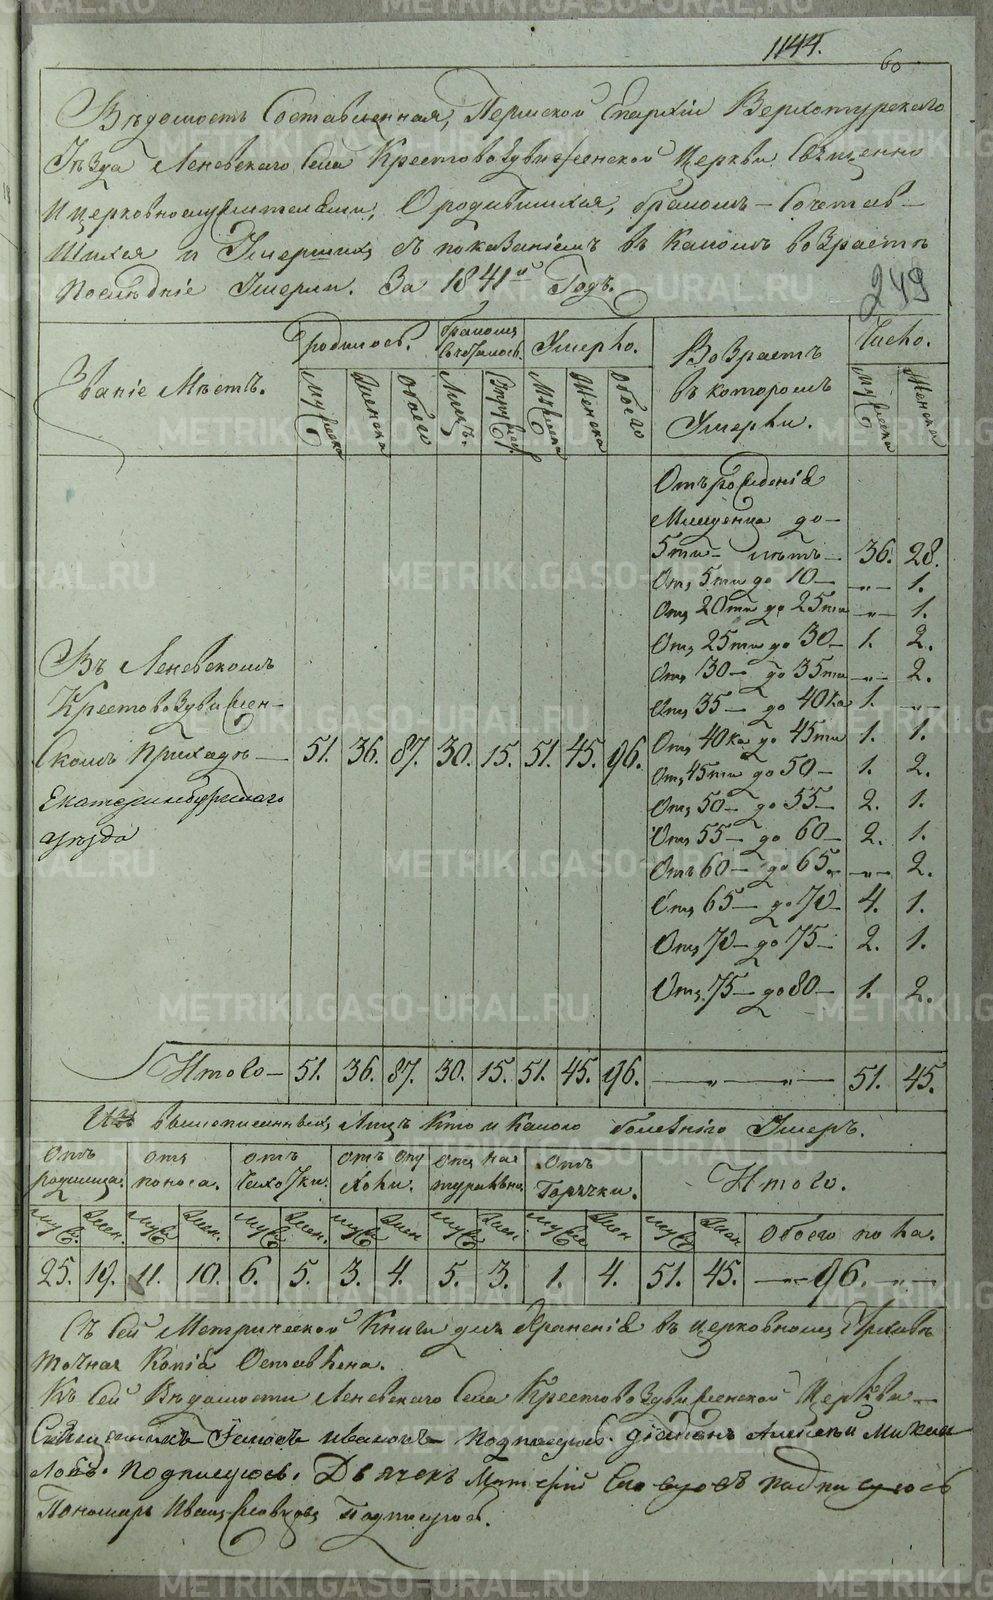 1144.
60
Вѣдомость Составленная, Пермской Епархіи Верхотурскаго
Уѣзда Леневскаго Села Крестовоздвиженской Церкви Священно
И церковнослужителями, О родившихся, бракомъ – Сочетав–
Шихся и Умершихъ съ показаніемъ въ какомъ возрастѣ
послѣдніе Умерли. За 1841й Годъ.
249
Званіе Мѣстъ.
Родилось.
Бракомъ сочеталось.
Умерло.
Возрастъ въ которомъ Умерли.
Число.
Мужеска Женска Обоего Лицъ. Мужеска Женска Обоего Мужеска Женска
Отъ рожденія
Младенца до–
5ти– лѣтъ– 36. 28.
Отъ 5ти до 10– –„– 1.
Отъ 20ти до 25ти –„– 1.
Отъ 25ти до 30– 1. 2.
Отъ 30– до 35ти –„– 2.
Отъ 35– до 40ка 1. –„–
Отъ 40ка до 45ти 1. 1.
Отъ 45ти до 50– 1. 2.
Отъ 50– до 55– 2. 1.
Отъ 55– до 60– 2. 1.
Отъ 60– до 65. –„– 2.
Отъ 65– до 70– 4. 1.
Отъ 70– до 75– 2. 1.
Отъ 75– до 80– 1. 2.
Въ Леневскомъ
Крестовоздвижен–
Скомъ Приходѣ– 51. 36. 87. 30. 15. 51. 45. 96.
Екатеринбургскаго
уѣзда
Итого– 51. 36. 87. 30. 15. 51. 45. 96. –„–„– 51. 45.
Изъ вышеписанныхъ Лицъ Кто и Какою болезнію Умеръ.
Отъ родимца. Отъ поноса. Отъ Чихотки. Отъ опухоли. Отъ натуральна Отъ Горячки. Итого.
Муж. Жен. Муж. Жен. Муж. Жен. Муж. Жен. Муж. Жен. Муж. Жен. Муж. Жен. Обоего пола.
25. 19. 11. 10. 6. 5. 3. 4. 5. 3. 1. 4. 51. 45. –„–96.–„–
Съ Сей Метрической Книги для Храненія въ церковномъ Архивѣ
точная Копія Оставлена.
Къ Сей Вѣдомости Леневскаго Села Крестовоздвиженской Церкви–
Священникъ подписуюсь. діаконъ Алексѣй Михаи
ловъ. подписуюсь. Дьячекъ подписуюсь
Пономарь Иванъ Словцовъ Подписуюсь.
METRIKI.GASO-URAL.RU